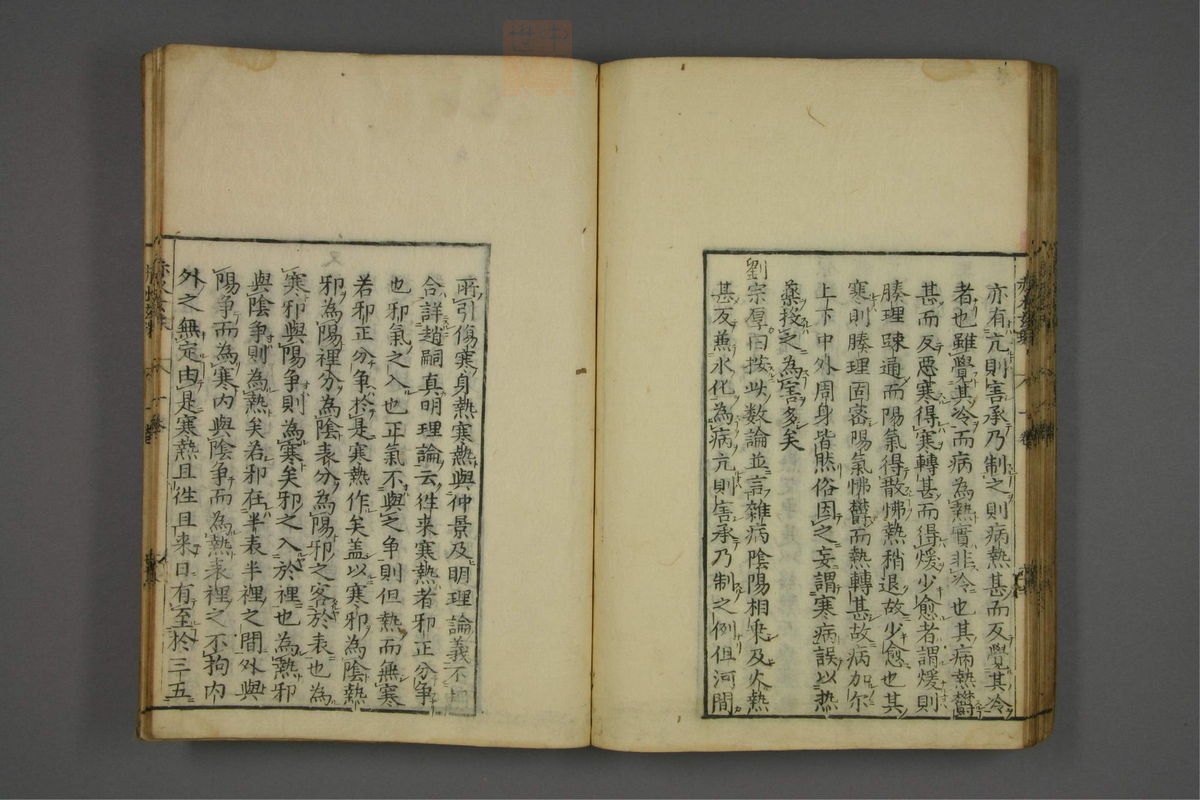 亦有亢則害承乃制之則病熱甚而反覺其冷
者也雖覺其冷而病為熱實非冷也其病熱鬱
甚而反惡寒得寒轉甚而得煖少愈者謂煖則
腠理踈通而陽氣得散怫熱稍退故少愈也其
寒則腠理固密陽氣怫鬱而熱轉甚故病加尔
上下中外周身皆然俗因之妄謂寒病誤以热
藥投之為害多矣
劉宗厚曰按此数論並言雜病陰陽相乘及火熱
甚反兼水化為病亢則害承乃制之例但河間
所引傷寒身熱寒熱與仲景及明理論義不
合詳趙嗣真明理論云徃来寒熱者邪正分争
也邪氣之入也正氣不與之争則但熱而無寒
若邪正分争於是寒熱作矣盖以寒邪為陰熱
邪為陽裡分為陰表分為陽邪之客於表也為
寒邪與陽争則為寒矣邪之入於裡也為熱邪
與陰争則為熱矣若邪在半表半裡之間外與
陽争而為寒内與陰争而為熱表裡之不拘内
外之無定由是寒熱且徃且来日有至於三五